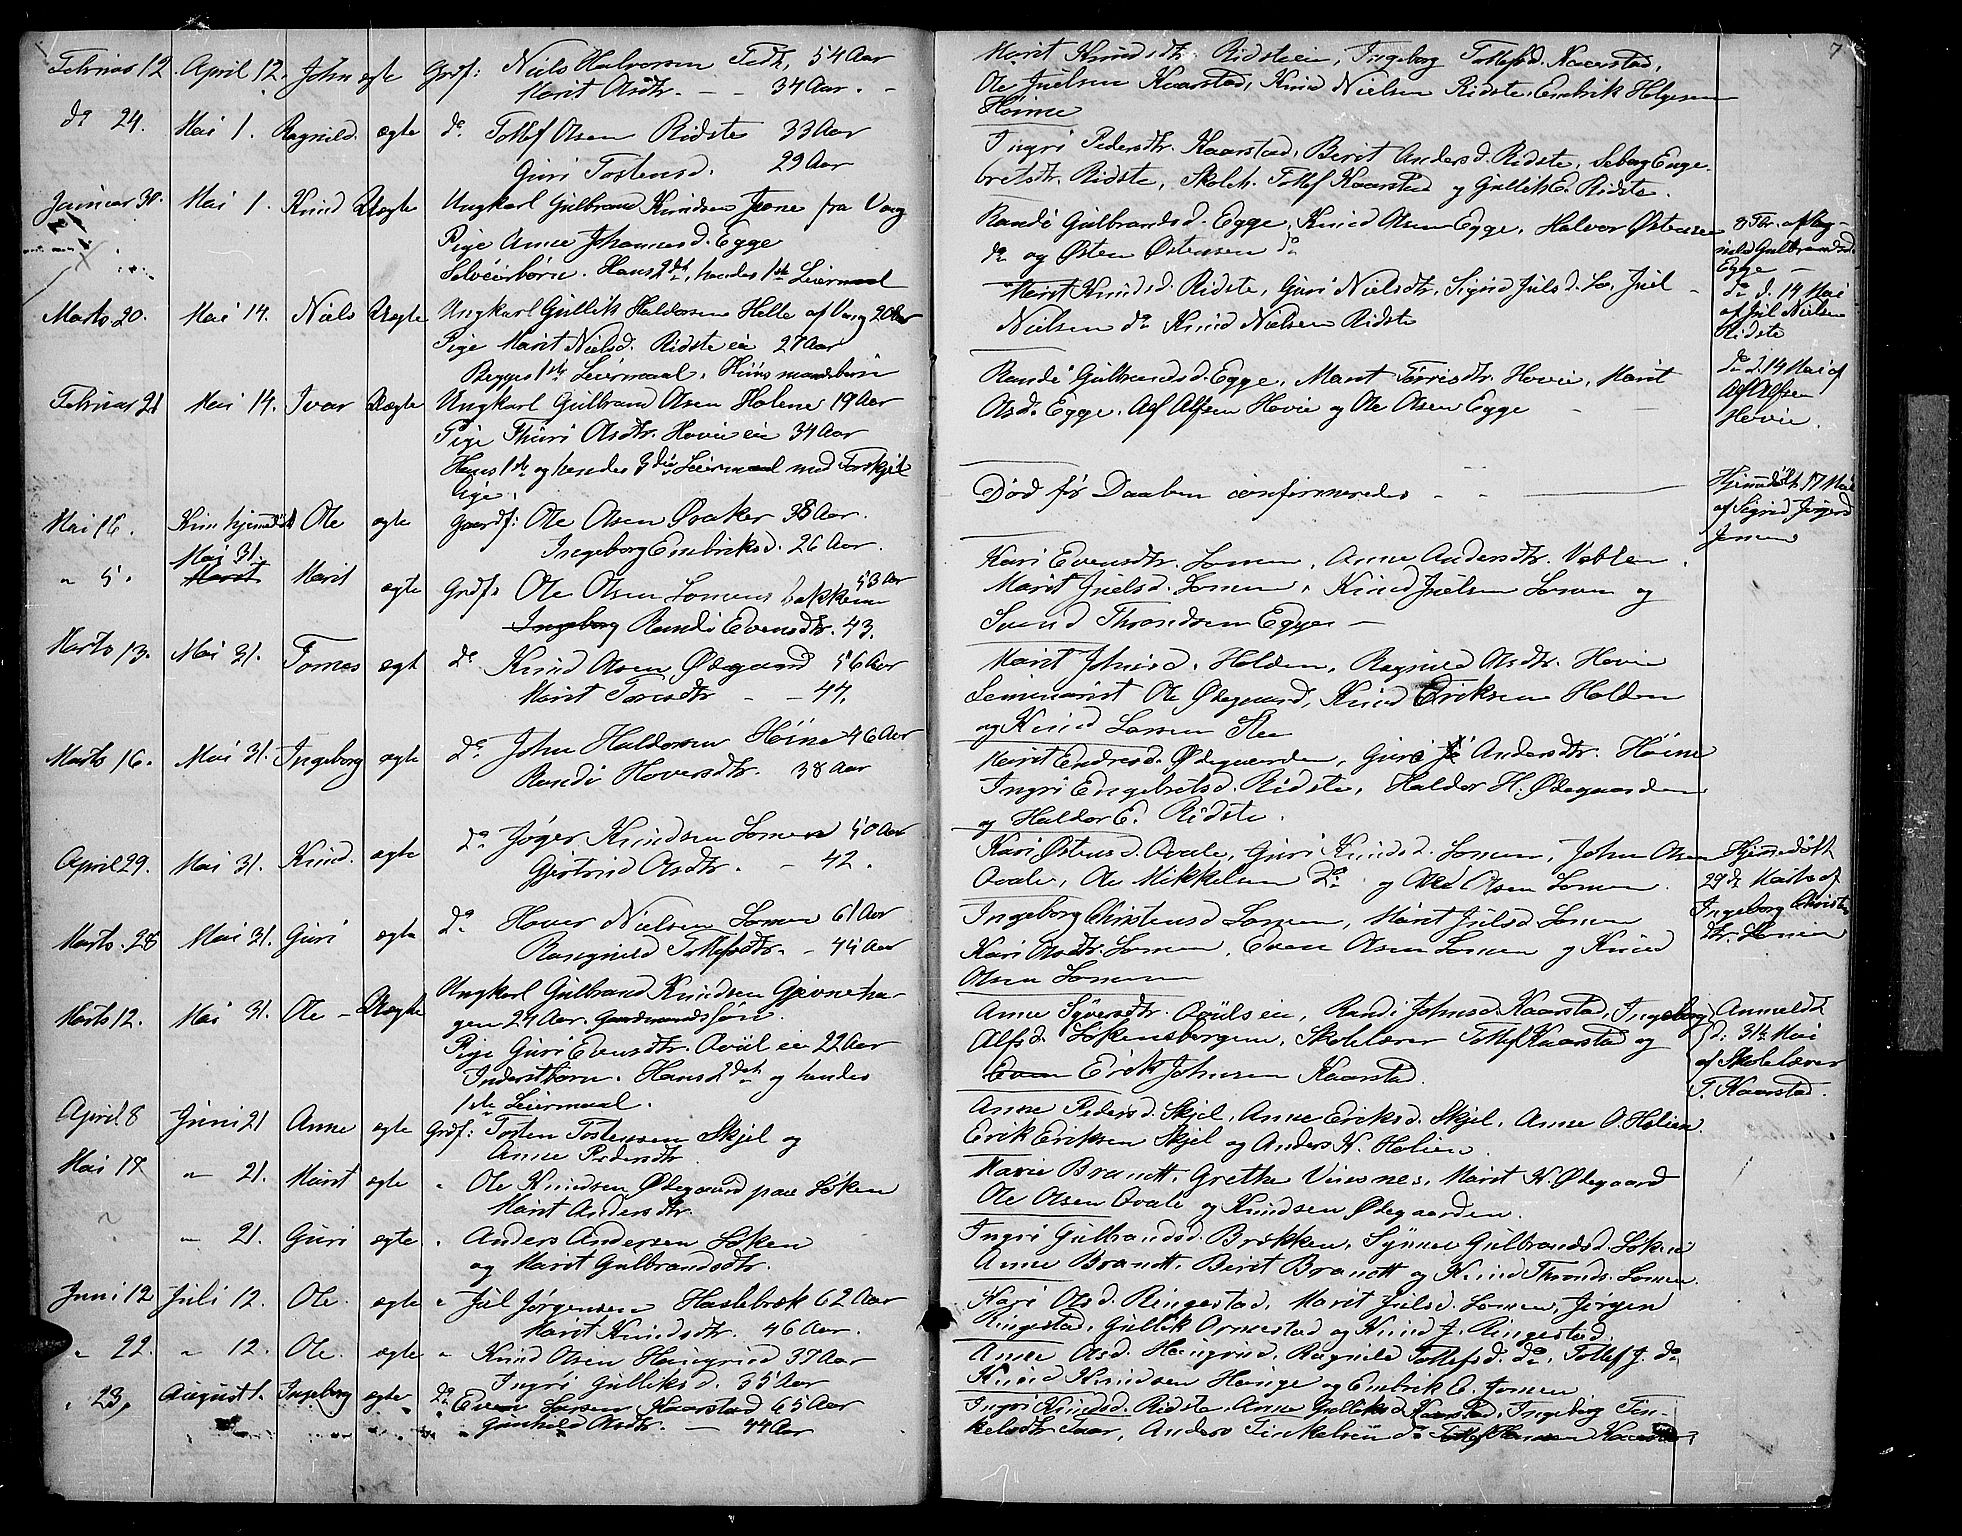 Februar 12. April 12. John ægte Grdf: Niels Halvorsen Feth, 54 Aar
Marit Olsdtr. - - 34 Aar. -
do 24. Mai 1. Ragnild. ægte do Tollef Olsen Ridste 33 Aar
Guri Tostensd. 29 Aar
Januar 30. Mai 1. Knud Uægte Ungkarl Gulbrand Knudsen fra Vang
Pige Anne Johannesd. Egge
Selveierbørn. Hans 2det, hendes 1ste Leiermaal
Marts 20. Mai 14. Niels Uægte Ungkarl Gullik Haldorsen Helle af Vang 20 Aar
Pige Marit Nielsd. Ridste eie 27 Aar
Begges 1ste Leiermaal. Huusmandsbørn
Februar 21 Mai 14. Ivar Uægte Ungkarl Gulbrand Olsen Holene 19 Aar
Pige Thuri Olsdtr. Hovie eie 34 Aar
Hans 1ste og hendes 3die Leiermaal med Forskjel
lige.
Mai 16. Kun hjemedøbt Ole ægte Gaardf: Ole Olsen Øvaker 38 Aar.
Ingeborg Embriksd. 26 Aar.
" 5. Mai 31. Marit ægte Grdf: Ole Olsen Lomens bakken 53 Aar
Ingeborg Randi Evensdtr. 43.
Marts 13. Mai 31. Tomas ægte do Knud Olsen Ødegaard 56 Aar
Marit Torisdtr - - 47.
Marts 16. Mai 31. Ingeborg ægte do John Haldorsen Høine 46 Aar
Randi Hoversdtr. 38 Aar
April 29. Mai 31. Knud. ægte do Jøger Knudsen Lomen 50 Aar
Gjertrud Olsdtr. - 42.
Marts. 28 Mai 31. Guri ægte do Hover Nielsen Lomen 61 Aar
Rangnild Tollefsdtr. - 44 Aar
Marts 12. Mai 31. Ole - Uægte Ungkarl Gulbrand Knudsen Gjevneha-
gen 24 Aar. Gaardmandssøn.
Pige Guri Evensdtr. Qvale eie 22 Aar
Inderstbørn. Hans 2det og hendes
1ste Leiermaal.
April 8 Juni 21 Anne ægte Grdf: Tosten Tostensen Skjel og
Anne Pedersdtr.
Mai 17 " 21. Marit ægte " Ole Knudsen Ødegaard paa Løken
Marit Andersdtr.
" " 21. Guri ægte " Anders Andersen Løken
og Marit Gulbrandsdtr.
Juni 12 Juli 12. Ole. ægte " Jul Jørgensen Haslebræk 62 Aar
Marit Knudsdtr. 46 Aar.
" 22. " 12. Ole. ægte " Knud Olsen Haugrud 37 Aar
Ingri Gulliksd. 35 Aar
" 23, August 1. Ingeborg ægte do Even Larsen Kaarstad 65 Aar
Gunhild Olsdtr. - 44 Aar
7
Marit Knudsdtr. Ridste eie, Ingeborg Tollefsd. Kaarstad,
Ole Juelsen Kaarstad, Knud Nielsen Ridste, Embrik Helgesen
Høine
Ingri Pedersdtr. Kaarstad, Berit Andersd. Ridste, Seborg Enge-
bretsdtr. Ridste, Skolel. Tollef Kaarstad og Gullik E. Ridste.
Randi Gulbrandsd. Egge, Knud Olsen Egge, Halvor Østensen
do og Østen Østensen do
Marit Knudsd. Ridste, Guri Nielsdtr., Sigrid Julsd. Juel
Nielsen do Knud Nielsen Ridste
Randi Gulbrandsd. Egge, Marit Torrisdtr. Hovie, Marit
Olsd. Egge. Alf Alfsen Hovie og Ole Olsen Egge
Død før Daaben confirmeredes
Kari Evensdtr. Lomen, Anne Andersdtr. Veblen.
Marit Juelsd. Lomen, Knud Juelsen Lomen og
Svend Throndsen Egge -
Marit Johnsd. Holden, Ragnild Olsdtr. Hovie
Seminarist Ole Ødegaard, Knud Eriksen Holden
og Knud Lomen
Marit Endresd. Ødegaarden, Guri Andersdtr. Høine
Ingri Engebretsd. Ridste, Haldor H. Ødegaarden
og Haldor E. Ridste.
Kari Østensd. Qvale, Guri Knudsd. Lomen, John Olsen
Qvale, Ole Mikkelsen do og Olsen Lomen.
Ingeborg Christensd Lomen, Marit Julsd Lomen
Kari Olsdtr. Lomen, Even Olsen Lomen og Knud
Olsen Lomen
Anne Syversdtr. Qvals eie, Randi Johnsd. Kaarstad, Ingeborg
Alfsd. Løkensbergene, Skolelærer Tollef Kaarstad og
Even Erik Johnsen Kaarstad.
Anne Pedersd. Skjel, Anne Eriksd. Skjel, Anne O. Holien.
Erik Eriksen Skjel og Anders K. Holien.
Marie Brandt, Grethe Vinsnes, Marit K. Ødegaard
Ole Olsen Qvale og Knudsen Ødegaarden.
Ingri Gulbrandsd. Brækken, Synne Gulbrandsd. Løken
Anne Brandt, Berit Brandt og Knud Thronds. Lomen.
Kari Olsd. Ringestad, Marit Julsd. Lomen, Jørgen
Ringestad, Gullik Ormestad og Knud J. Ringestad.
Anne Olsd. Haugrud, Ragnild Tollefsd. do, Tollef J. do
Knud Knudsen Hauge og Embrik E. Jomen
Ingri Knudsd. Ridste, Anne Gulliksd Kaarstad, Ingeborg Tin-
kelsdtr. Anders Tinkelsen do Tollef Hansen Kaarstad,
8 Thr. af Rag-
nild Gulbrandsd.
Egge -
do d. 14 Mai
af Jul Nielsen
Ridste
do d. 14 Mai af
Alf Alfsen
Hovie.
Hjemmedøbt 17 Mai
af Sigrid Jørgensd
Jomen
Hjemmedøbt
29de Marts af
Ingeborg Christens
dtr. Lomen
Anmeldt
d. 31te Mai
af Skolelærer
T. Kaarstad.